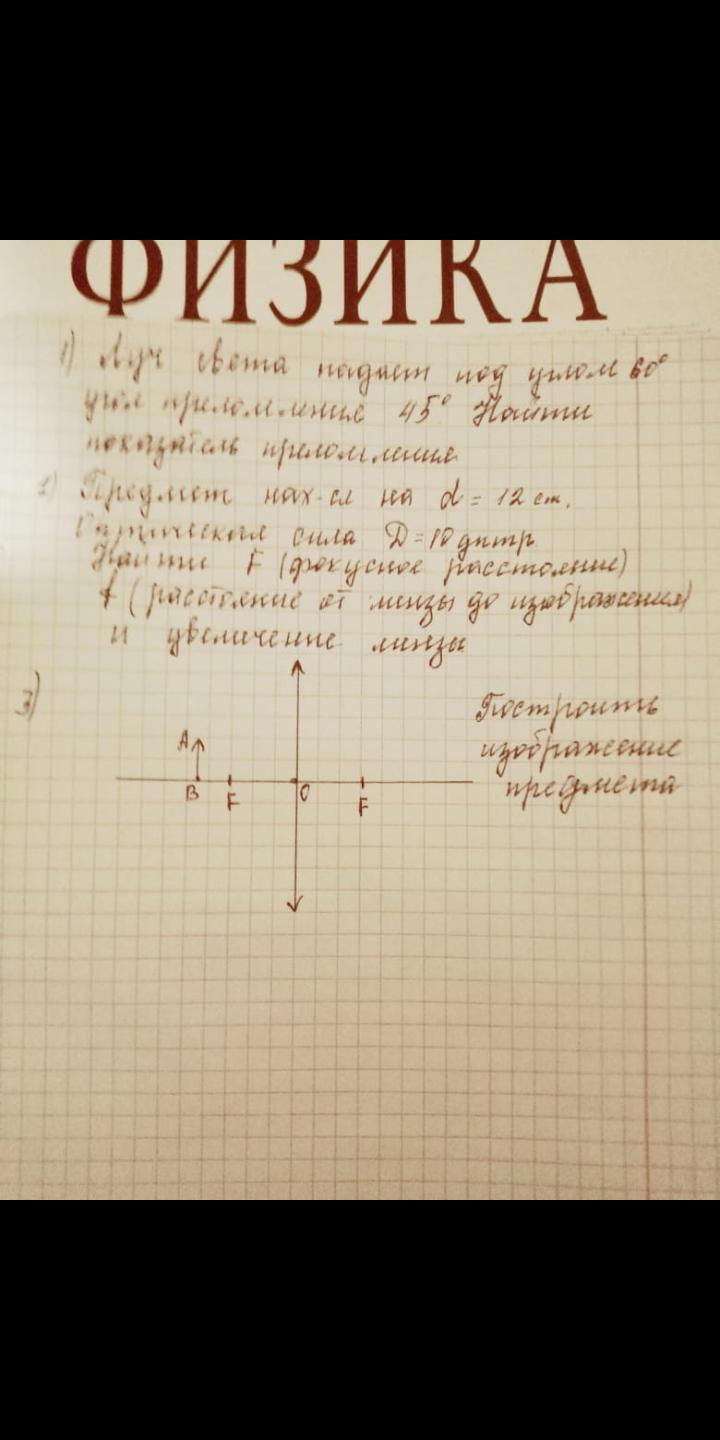 ФИЗИКА
1) Луч света падает под углом 60°
угол преломления 45° Найти
показатель преломления
2) Предмет нах-ся на d = 12 см.
Оптическая сила D = 10 дптр
Найти F (фокусное расстояние)
f (расстояние от линзы до изображения)
и увеличение линзы
3)
Построить
изображение
предмета
A
B F O F